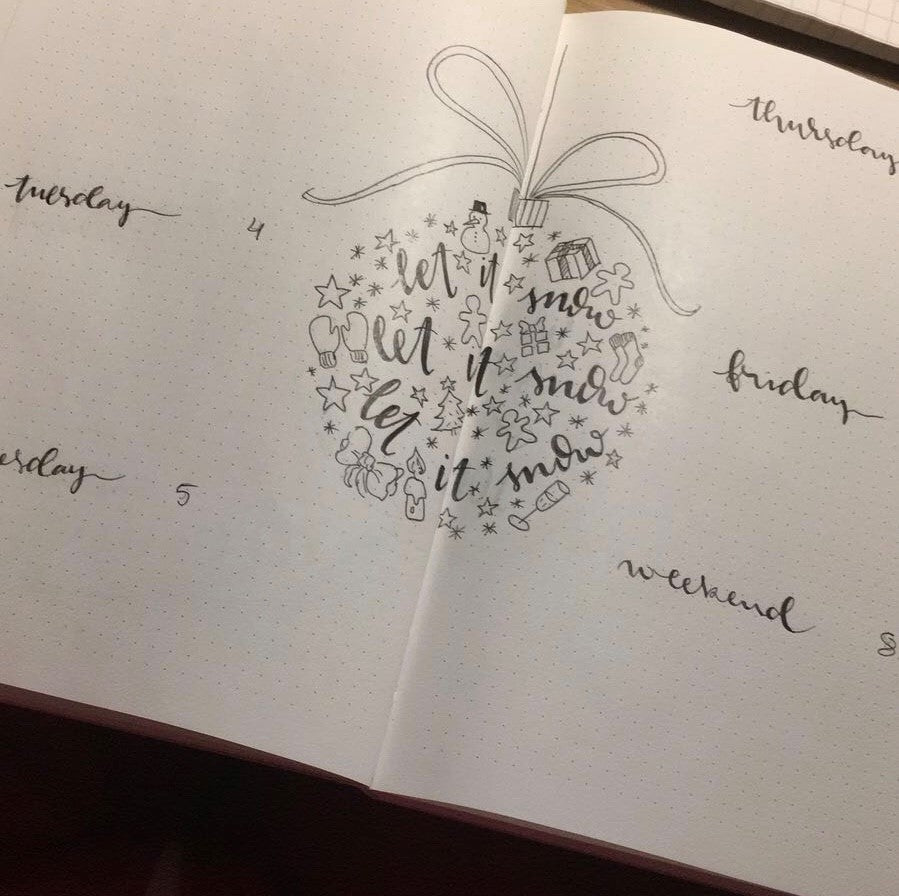 tuesday 4
esday 5
let it snow
let it snow
let it snow
thursday
friday
weekend 8